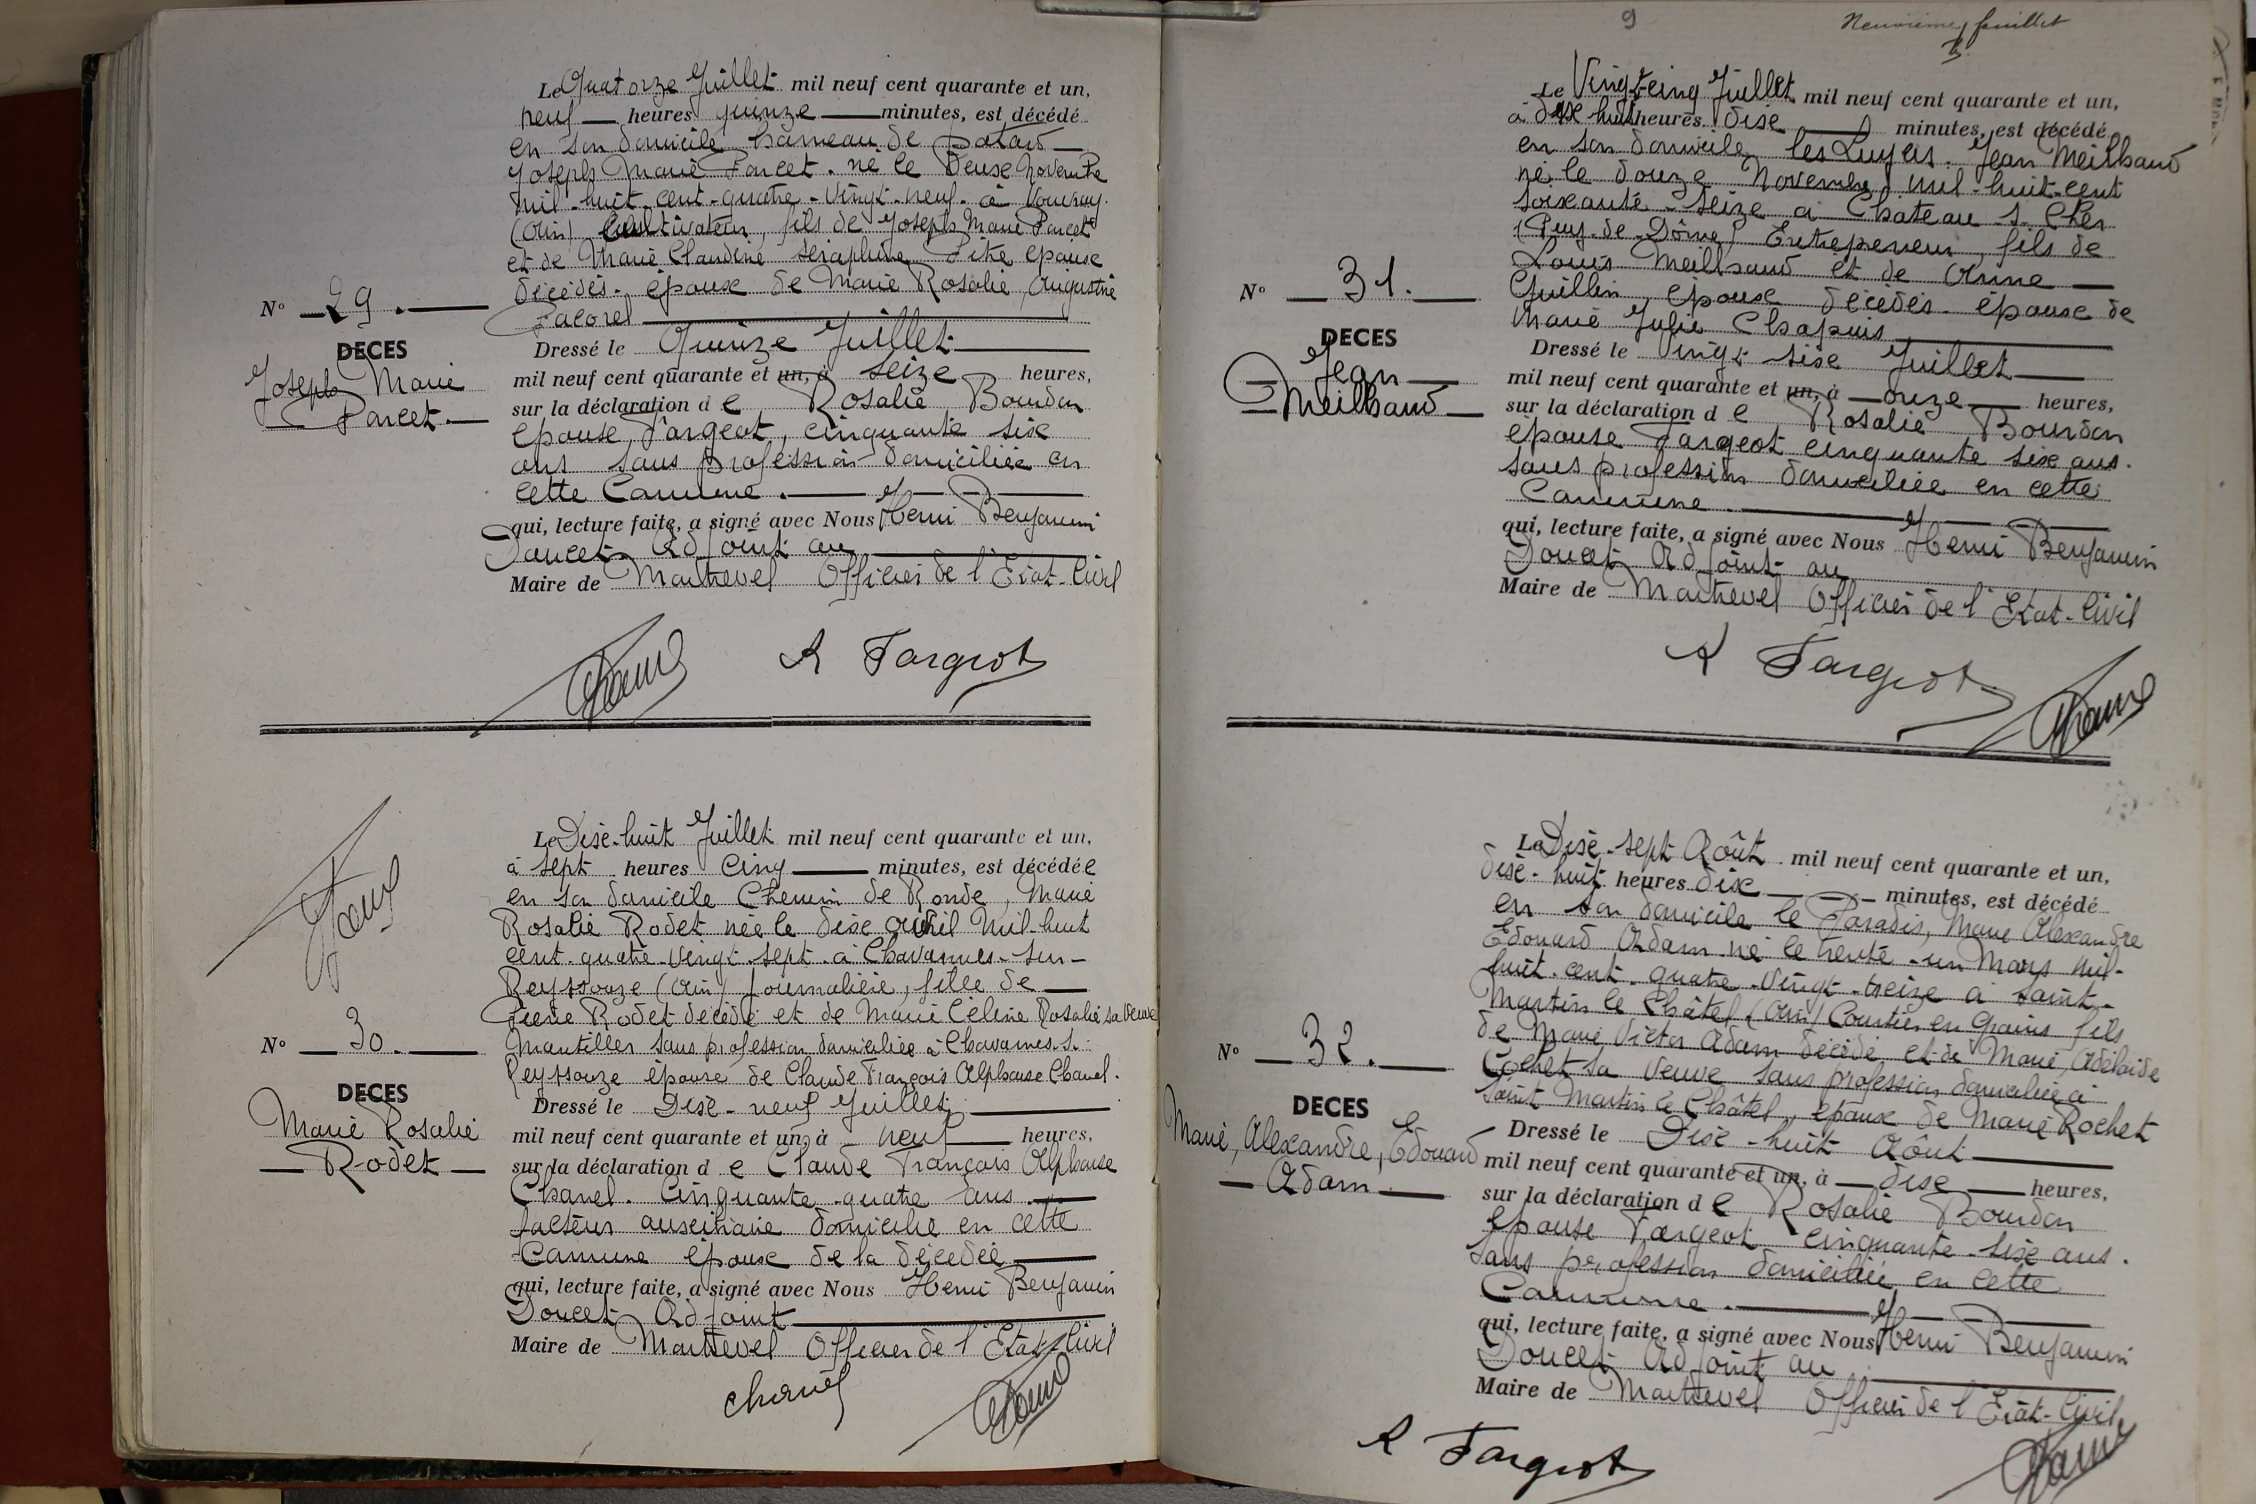 Le Quatorze Juillet mil neuf cent quarante et un,
neuf heures quinze minutes, est décédé
en son domicile hameau de
Joseph Marie Parcet. né le Deuxe Novembre
mil-huit-cent-quatre-vingt-neuf à
(Ain) Cultivateur, fils de Joseph Marie Parcet
et de Marie Claudine Séraphine épouse
décédés. époux de Marie Rosalie, Augustine
Pacorel
N° 29.
DECES
Joseph Marie
Parcet.
Dressé le Quinze Juillet
mil neuf cent quarante et un, à seize heures,
sur la déclaration de Rosalie Bourdon
épouse Fargeot, cinquante six
ans sans profession domiciliée en
cette Commune.
qui, lecture faite, a signé avec Nous Henri Benjamin
Doucet Adjoint au
Maire de Montrevel Officier de l'Etat-Civil
R Fargeot
Le Dix-huit Juillet mil neuf cent quarante et un,
à sept heures Cinq minutes, est décédée
en son domicile Chemin de Ronde, Marie
Rosalie Rodet née le dix avril Mil-huit
cent-quatre-vingt-sept à Chavannes-sur-
Reyssouze (Ain) Journalière, fille de
Pierre Rodet décédé et de Marie Céline Rosalie sa veuve
Mantillier sans profession domiciliée à Chavannes-s.
Reyssouze épouse de Claude François Alphonse Chanel.
N° 30.
DECES
Marie Rosalie
Rodet
Dressé le Dix-neuf Juillet
mil neuf cent quarante et un, à neuf heures,
sur la déclaration de Claude François Alphonse
Chanel. Cinquante-quatre ans
facteur auxiliaire domicilié en cette
Commune époux de la décédée
qui, lecture faite, a signé avec Nous Henri Benjamin
Doucet Adjoint
Maire de Montrevel Officier de l'Etat-Civil
Chanel
9
Neuvième feuillet
Le Vingt-cinq Juillet mil neuf cent quarante et un,
à dix huit heures dix minutes, est décédé
en son domicile les Luyers. Jean Meilhaud
né le douze Novembre mil-huit-cent
soixante-seize à Chateau s. Cher
(Puy-de-Dôme) Entrepreneur, fils de
Louis Meilhaud et de Anne
Guillin, épouse décédés. époux de
Marie Julie Chapuis
N° 31.
DECES
Jean
Meilhaud
Dressé le Vingt-six Juillet
mil neuf cent quarante et un, à onze heures,
sur la déclaration de Rosalie Bourdon
épouse Fargeot cinquante six ans.
sans profession domiciliée en cette
Commune.
qui, lecture faite, a signé avec Nous Henri Benjamin
Doucet Adjoint au
Maire de Montrevel Officier de l'Etat-Civil
R Fargeot
Le Dix-sept Août mil neuf cent quarante et un,
dix-huit heures dix minutes, est décédé
en son domicile le Paradis, Marie Alexandre
Edouard Adam né le trente-un Mars mil-
huit-cent-quatre-vingt-treize à Saint-
Martin le Châtel (Ain) Courtier en grains fils
de Marie Victor Adam décédé et de Marie, Adélaïde
Cochet sa veuve sans profession domiciliée à
Saint Martin le Châtel, époux de Marie Rochet
N° 32.
DECES
Marie, Alexandre, Edouard
Adam
Dressé le Dix-huit Août
mil neuf cent quarante et un, à dix heures,
sur la déclaration de Rosalie Bourdon
épouse Fargeot cinquante-six ans.
sans profession domiciliée en cette
Commune.
qui, lecture faite, a signé avec Nous Henri Benjamin
Doucet Adjoint au
Maire de Montrevel Officier de l'Etat-Civil
R Fargeot